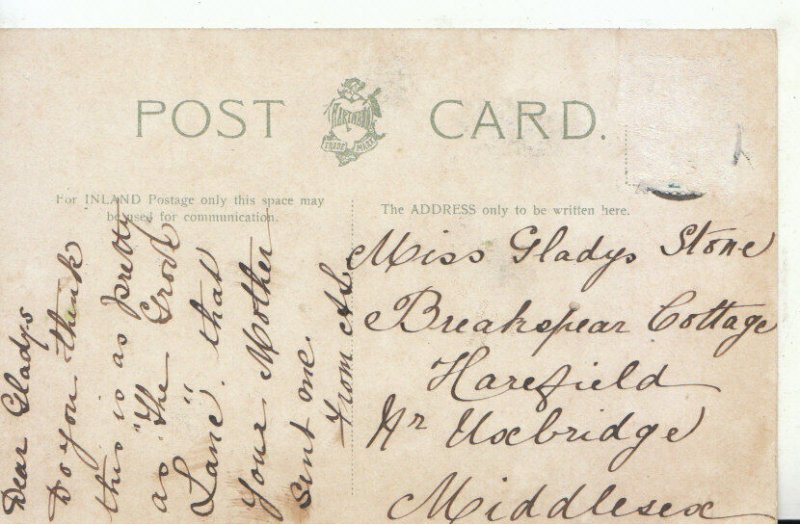 POST CARD.
HARTMANN
TRADE MARK
For INLAND Postage only this space may
be used for communication.
The ADDRESS only to be written here.
Dear Gladys
Do you think
this is as pretty
as "The Grove
Lane" that
your Mother
sent me.
From
Miss Gladys Stone
Breakspear Cottage
Harefield
Nr Uxbridge
Middlesex